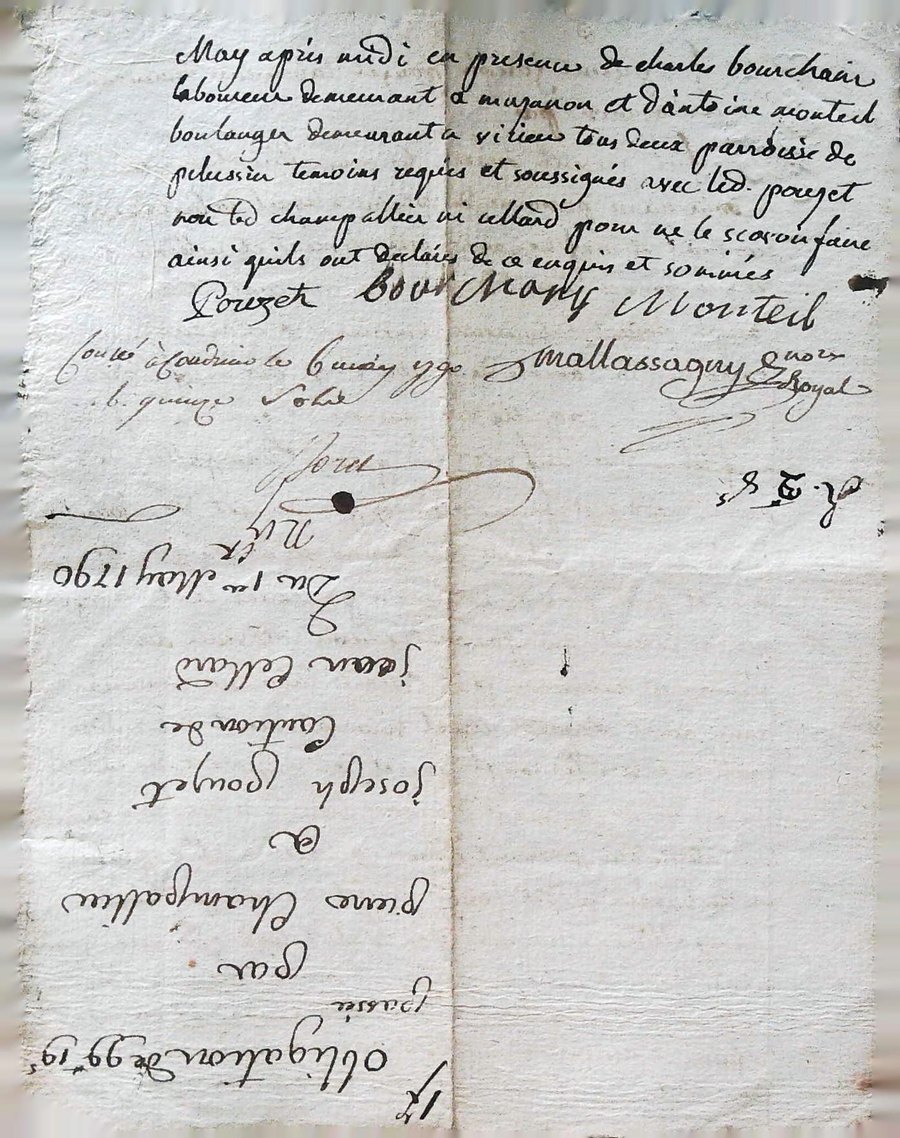 May après midi en presence de charles bourchain
laboureur demeurant a et d'antoine monteil
boulanger demeurant a virieu tous deux parroisse de
pelussin temoins requis et soussignés avec led. pouzet
non led champallier ni cellard pour ne le scavoir faire
ainsi quils ont declarés de ce enquis et sommés
Pouzet Bourchany Monteil
Conlé à Condrieu le 6 may 1790 Mallassagny Noire
Royal
R. quinze Sols
R. 2 8s
Obligation de 99 19s
passée
par
pierre Champallier
a
joseph pouzet
Caution de
jean Cellard
Du 1er May 1790